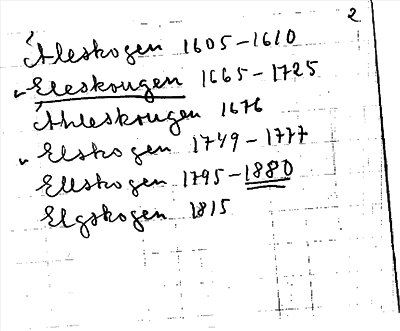 2
Åleskogen 1605-1610
Eleskougen 1665-1725
Åhleskougen 1676
Elskogen 1749-1777
Ellskogen 1795-1880
Elgskogen 1815